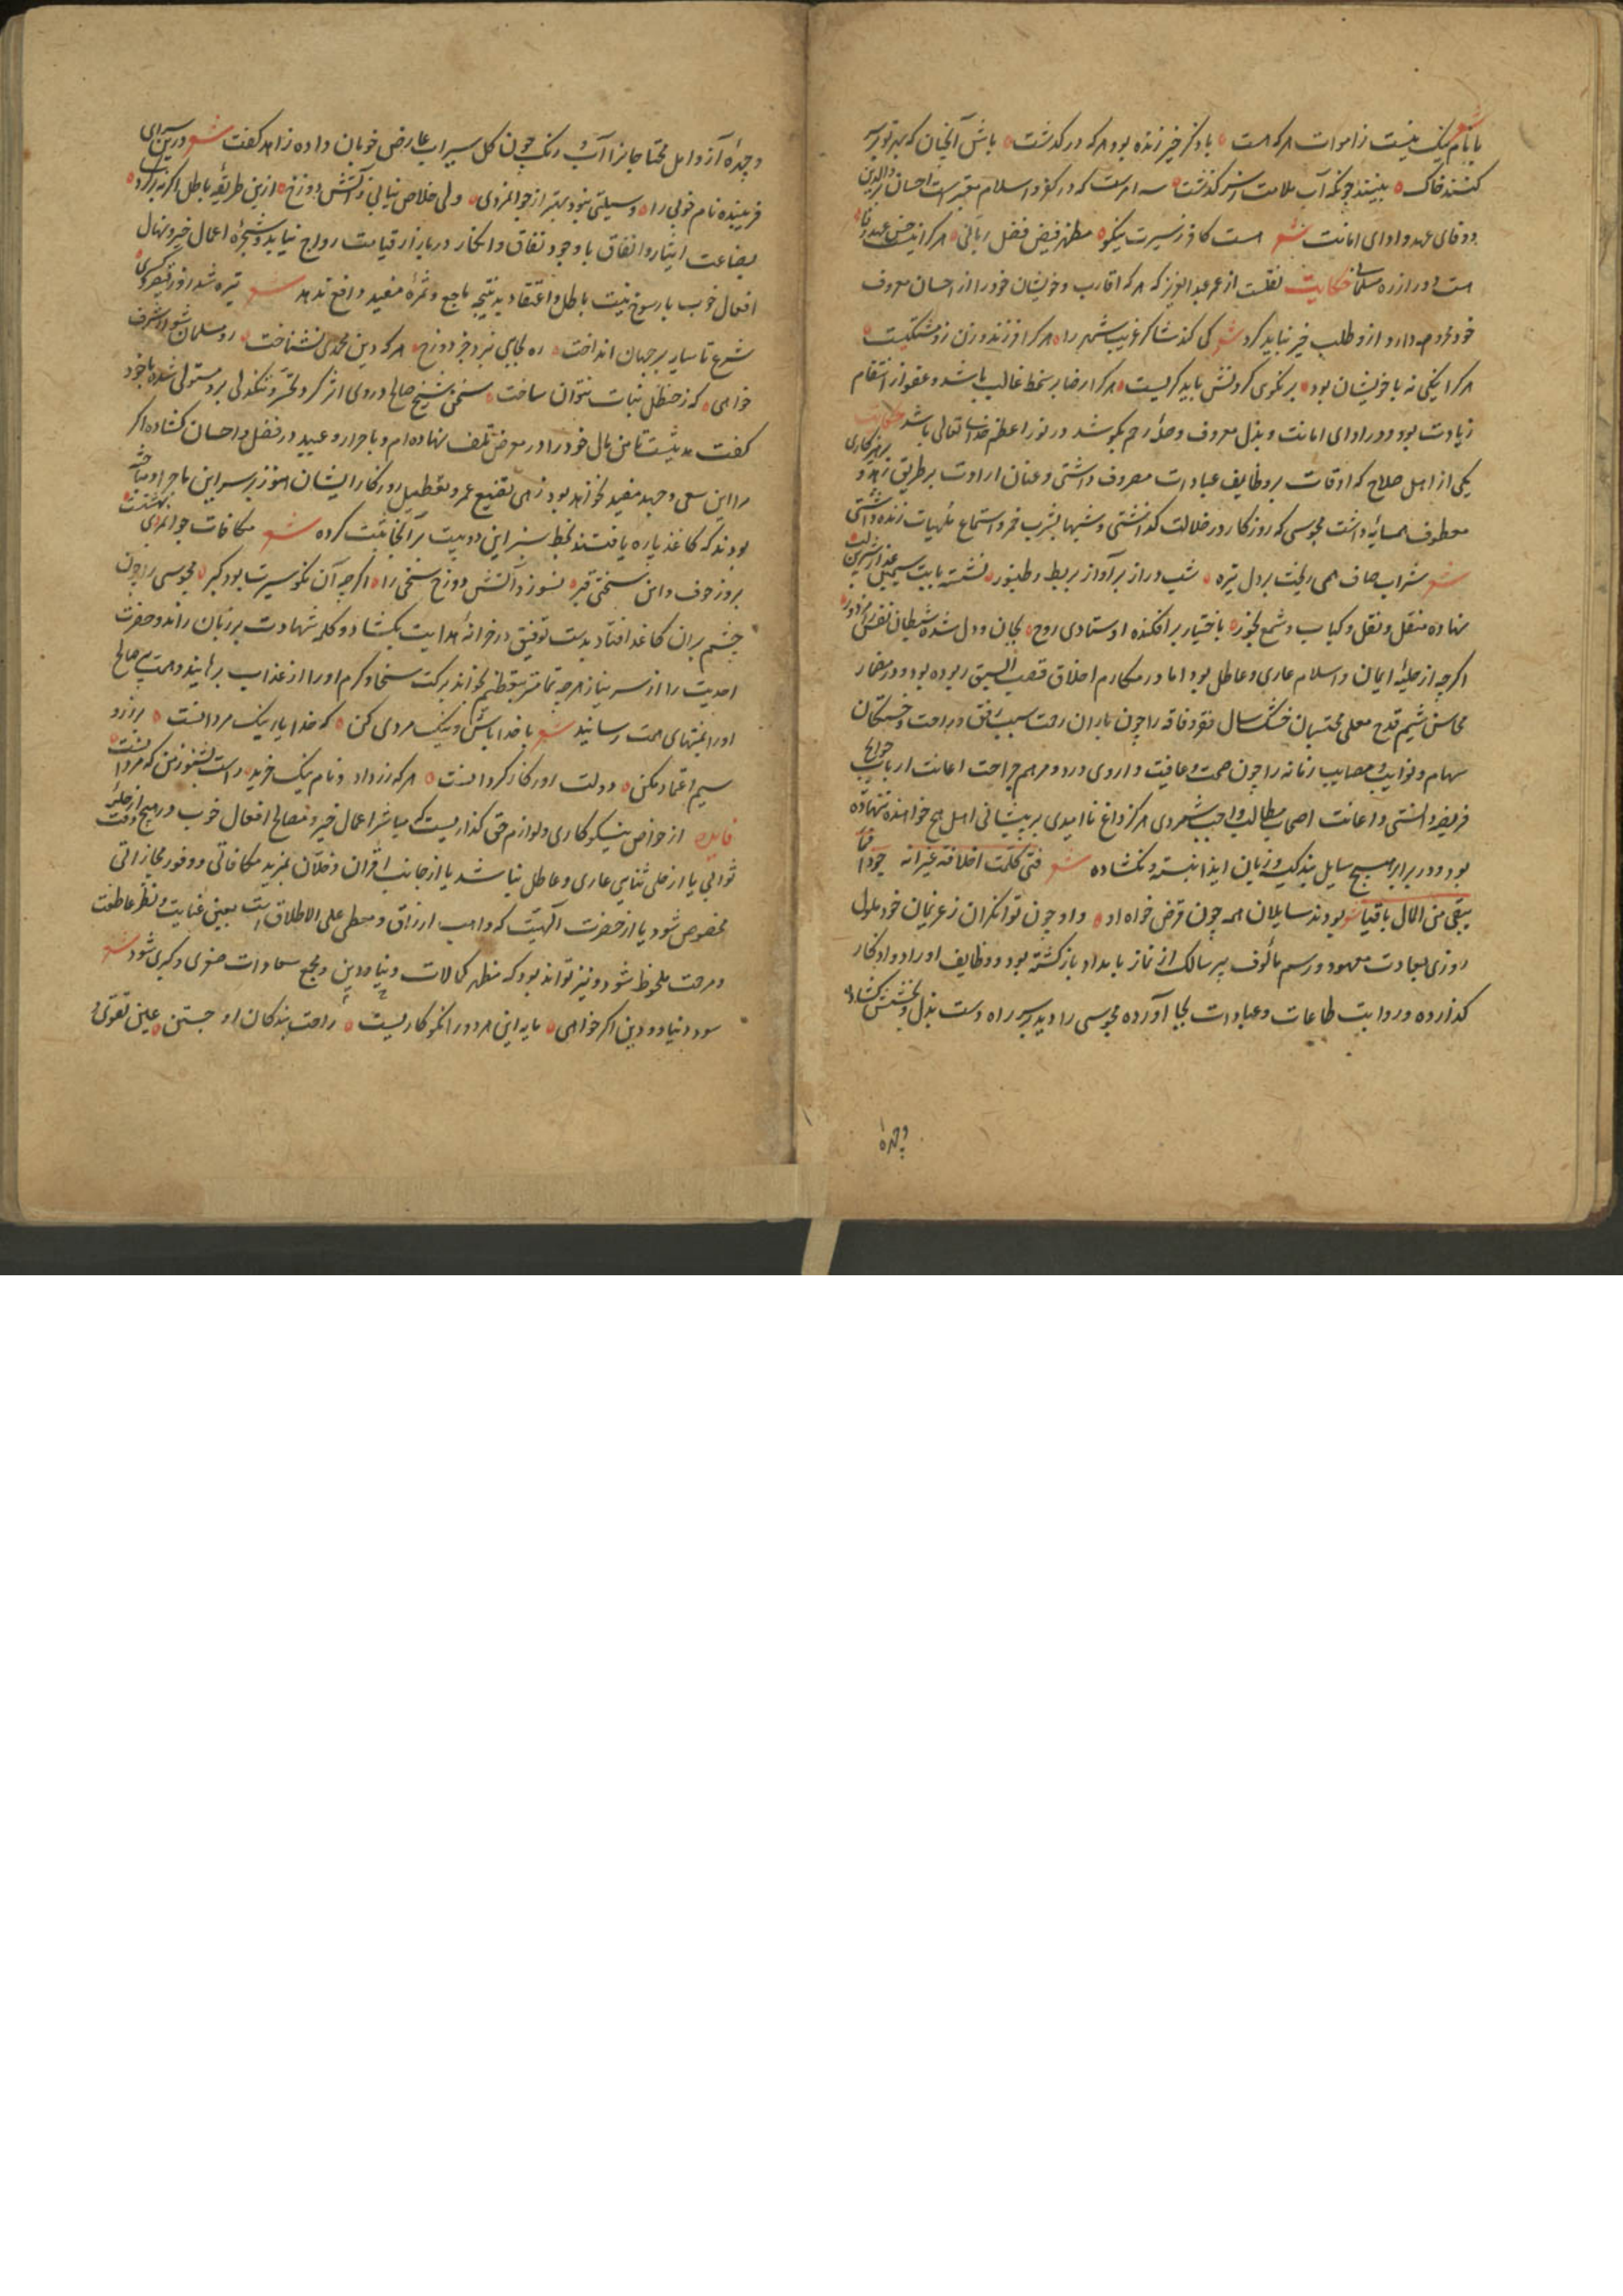 شعر
با نام نیک نیست ز اموات هر که هست باد ذکر خیر زنده بود هر که درگذشت باش آنچنان که بر تو بر سر
کنند خاک بینند چونکه آب ملامت ز سر گذشت سه امرست که در کفر و اسلام معتبرست احسان والدین
و وفای عهد و ادای امانت شعر هست کافر ز سیرت نیکو مظهر فیض فضل ربانی هر کرا نیست حسن عهد و وفا
هست دور از ره مسلمانی حکایت نقلست از عمر عبدالعزیز که هر که اقارب و خویشان خود را از احسان معروف
خود محروم دارد ازو طلب خیر نباید کرد شعر کی کند شاکر غریب شهر را هر کرا فرزند و زن زو مشتکیست
هر کرا نیکی نه با خویشان بود بر نکوی کردنش باید گریست هر کرا رضا بر سخط غالب باشد و عفو از انتقام
زیادت بود و در ادای امانت و بذل معروف و صلهٔ رحم بکوشد در نور اعظم خدای تعالی باشد حکایت
یکی از اهل صلاح که اوقات بر وظایف عبادات مصروف داشتی و عنان ارادت بر طریق زهد و پرهیزکاری
معطوف همسایهٔ داشت مجوسی که روزکار در ضلالت گذاشتی و شبها بشرب خمر و استماع ملهیات زنده داشتی
شعر شراب صاف همی ریخت بر دل تیره شب دراز بر آواز بربط و طنبور نشسته با بت سیمین عذار شیرین لب
نهاده منقل و نقل و کباب و شمع بخور باختیار برافکنده اوستادی روح بجان و دل شده شیطان نفس را مزدور
اگرچه از حلیهٔ ایمان و اسلام عاری و عاطل بود اما در مکارم اخلاق قصب السبق ربوده بود و در مضمار
محاسن شیم قدح معلی مجتبیان خشک سال فقر و فاقه را چون باران رحمت سبب رفق و راحت و خستگان
سهام و نوایب و مصایب زمانه را چون صحت و عافیت داروی درد و مرهم جراحت اعانت ارباب حوایج
فریضه داشتی و اعانت اصحاب مطالب واجب شمردی هرگز داغ ناامیدی بر پیشانی اهل هیچ خواهنده ننهاده
بود و در برابر هیچ سایل بند کیسه و زبان ایذا نبسته و نکشاده شعر فتی کملت اخلاقه غیر انه جواد فما
یبقی من المال باقیا شعر بودند سایلان همه چون قرض خواه او و او چون توانگران ز غریمان خود ملول
روزی بعادت معهود و رسم مألوف پیر سالک از نماز بامداد بازگشته بود و وظایف اوراد و اذکار
گذارده و رواتب طاعات و عبادات بجا آورده مجوسی را دید بر سر راه دست بذل و بخشش کشاده
و چهرهٔ
و چهرهٔ آز و امل محتاجانرا آب و رنگ چون گل سیراب عارض خوبان داده زاهد گفت شعر در ین سرای
فریبنده نام خوبی را وسیلتی نبود بهتر از جوانمردی ولی خلاص نیابی ز آتش دوزخ ازین طریقهٔ باطل اگر نه برگردی
بضاعت ایثار و انفاق با وجود نفاق و انکار در بازار قیامت رواج نیابد و شجرهٔ اعمال خیر و نهال
افعال خوب با رسوخ نیت باطل و اعتقاد بد نتیجهٔ ناجع و ثمرهٔ مفید و نافع ندهد شعر تیره شد روز قیصر و کسری
شرع تا سایه بر جهان انداخت ره بجایی نبرد جز دوزخ هر که دین محمدی نشناخت رو مسلمان شو ار شرف
خواهی که ز حنظل نبات نتوان ساخت سخن شیخ صالح در وی اثر کرد و تحیر و تنگدلی برو مستولی شده با خود
گفت مدتیست تا من مال خود را در معرض تلف نهاده‌ام و با احرار و عبید در فضل و احسان کشاده اگر
مرا این سعی و جهد مفید نخواهد بود زهی تضییع عمر و تعطیل روزگار ایشان هنوز بر سر این ماجرا و مباحثه
بودند که کاغذ پاره یافتند بخط سبز این دو بیت بر آنجا ثبت کرده شعر مکافات جوانمردی بهشتست
بروز خوف و امن سختی قبر نسوزد آتش دوزخ سخی را اگرچه آن نکو سیرت بود گبر مجوسی را چون
چشم بران کاغذ افتاد بدست توفیق در خزانهٔ هدایت بگشاد و کلمهٔ شهادت بر زبان راند و حضرت
احدیت را از سر نیاز هرچه تمامتر بتعظیم بخواند برکت سخا و کرم او را از عذاب برهانید و همت پیر صالح
او را بمنتهای همت رسانید شعر با خدا باش و نیک مردی کن که خدا یار نیک مردانست بر زر و
سیم اعتماد مکن دولت اور کار گردانست هر که زر داد و نام نیک خرید راست بشنو ز من که مرد آنست
فایده از خواص نیکوکاری و لوازم حق گذاریست که مباشر اعمال خیر و مصالح افعال خوب در هیچ وقت از حلیهٔ
ثوابی یا از حلی ثنایی عاری و عاطل نباشد یا از جانب اقران و خلان بمزید مکافاتی و وفور مجازاتی
مخصوص شود یا از حضرت الهیت که واهب ارزاق و معطی علی الاطلاق است بعین عنایت و نظر عاطفت
و مرحمت ملحوظ شود و نیز تواند بود که مظهر کمالات دنیا و دین و مجمع سعادات صغری و کبری شود شعر
سود دنیا و دین اگر خواهی مایه این هر دو را نکوکاریست راحت بندگان او جستن عین تقوی و